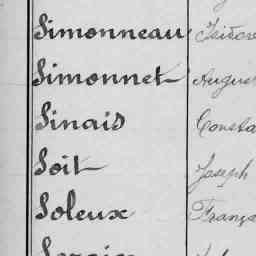 Simonneau Isidore
Simonnet Augus
Sinais Consta
Soit Joseph
Soleux França